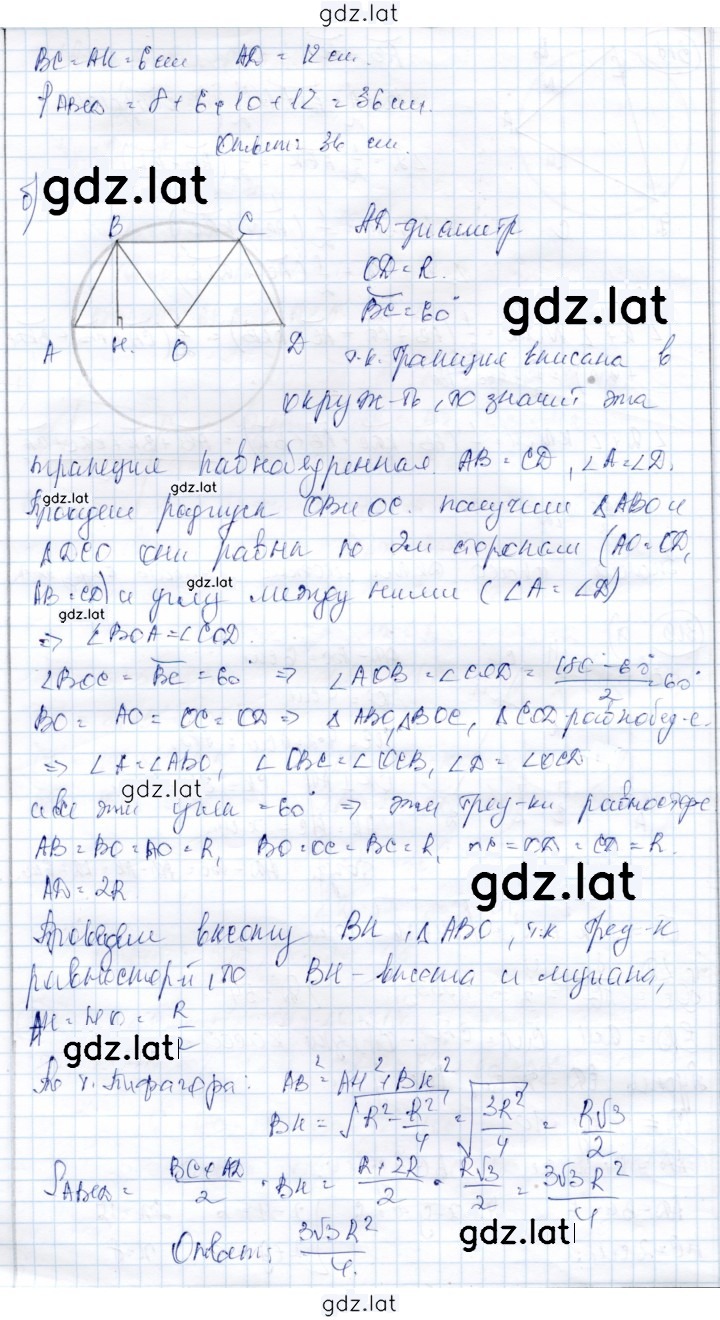 gdz.lat
BC = AK = 6 см AD = 12 см.
P ABCD = 8 + 6 + 10 + 12 = 36 см.
Ответ: 36 см.
б)
gdz.lat
B C
AD - диаметр
OD = R.
BC = 60°
gdz.lat
A H. O D
т.к. трапеция вписана в
окруж-ть, то значит эта
трапеция равнобедренная. AB = CD, ∠A = ∠D.
gdz.lat gdz.lat
Проведем радиусы OB и OC. получим ΔABO и
ΔDCO они равны по 2м сторонам (AO = OD,
gdz.lat
AB = CD) и углу между ними (∠A = ∠D)
gdz.lat
=> ∠BOA = ∠COD.
∠BOC = BC = 60° => ∠AOB = ∠COD = (180° - 60°)/2 = 60°
BO = AO = OC = OD => ΔABO, ΔBOC, ΔCOD равнобед-е.
=> ∠A = ∠ABO, ∠OBC = ∠OCB, ∠D = ∠OCD
gdz.lat
а все эти углы = 60° => эти треу-ки равностор
AB = BO = AO = R, BO = OC = BC = R, = OD = CD = R.
gdz.lat
AD = 2R
Проведем высоту BH, ΔABO, т.к треу-к
равностор-й, то BH - высота и медиана,
AH = HO = R/2
gdz.lat
По т. Пифагора: AB² = AH² + BH²
BH = √(R² - R²/4) = √(3R²/4) = R√3/2
S ABCD = (BC + AD)/2 · BH = (R + 2R)/2 · R√3/2 = 3√3R²/4
gdz.lat
Ответ: 3√3R²/4.
gdz.lat